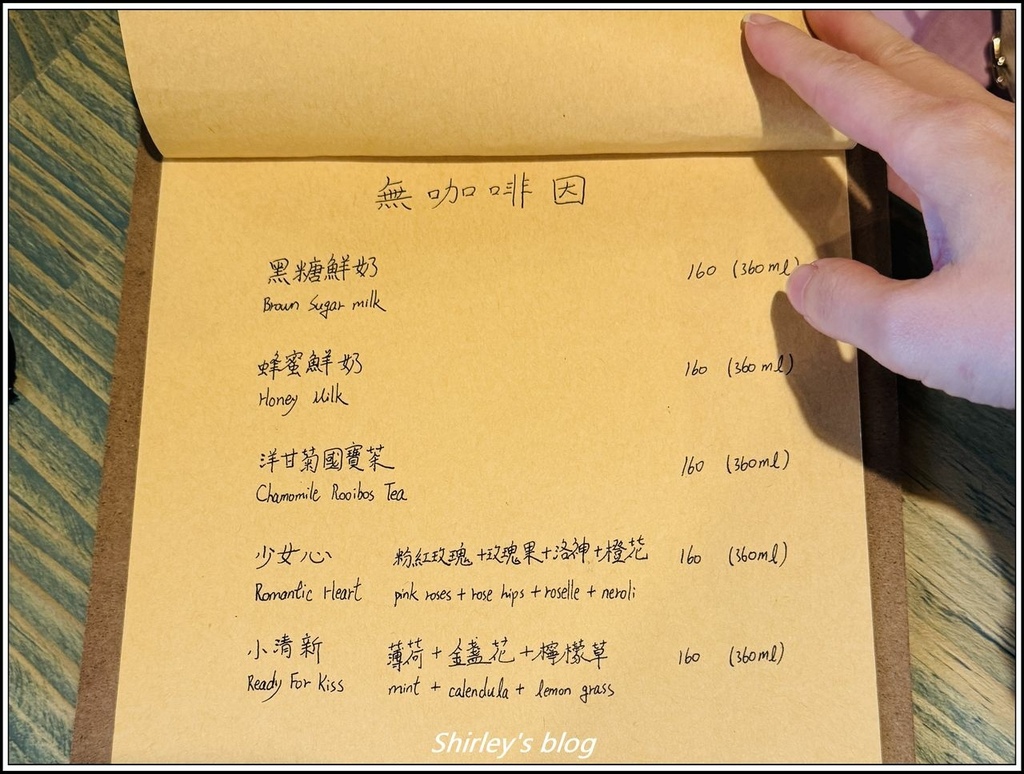 無咖啡因
黑糖鮮奶 160 (360ml)
Brown Sugar milk
蜂蜜鮮奶 160 (360ml)
Honey Milk
洋甘菊國寶茶 160 (360ml)
Chamomile Rooibos Tea
少女心 粉紅玫瑰+玫瑰果+洛神+橙花 160 (360ml)
Romantic Heart pink roses + rose hips + roselle + neroli
小清新 薄荷+金盞花+檸檬草 160 (360ml)
Ready For Kiss mint + calendula + lemon grass
Shirley's blog